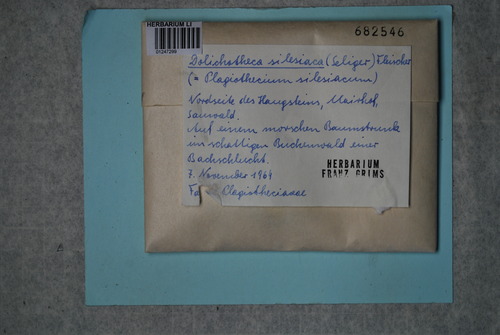 HERBARIUM LI
682546
Dolichotheca silesiaca (Seliger) Fleischer
(= Plagiothecium silesiacum)
Nordseite des Haugsteins,
Sauwald.
Auf einem morschen Baumstrunk
im schattigen Buchenwald einer
Bachschlucht.
HERBARIUM
FRANZ GRIMS
7. November 1969
Plagiotheciaceae